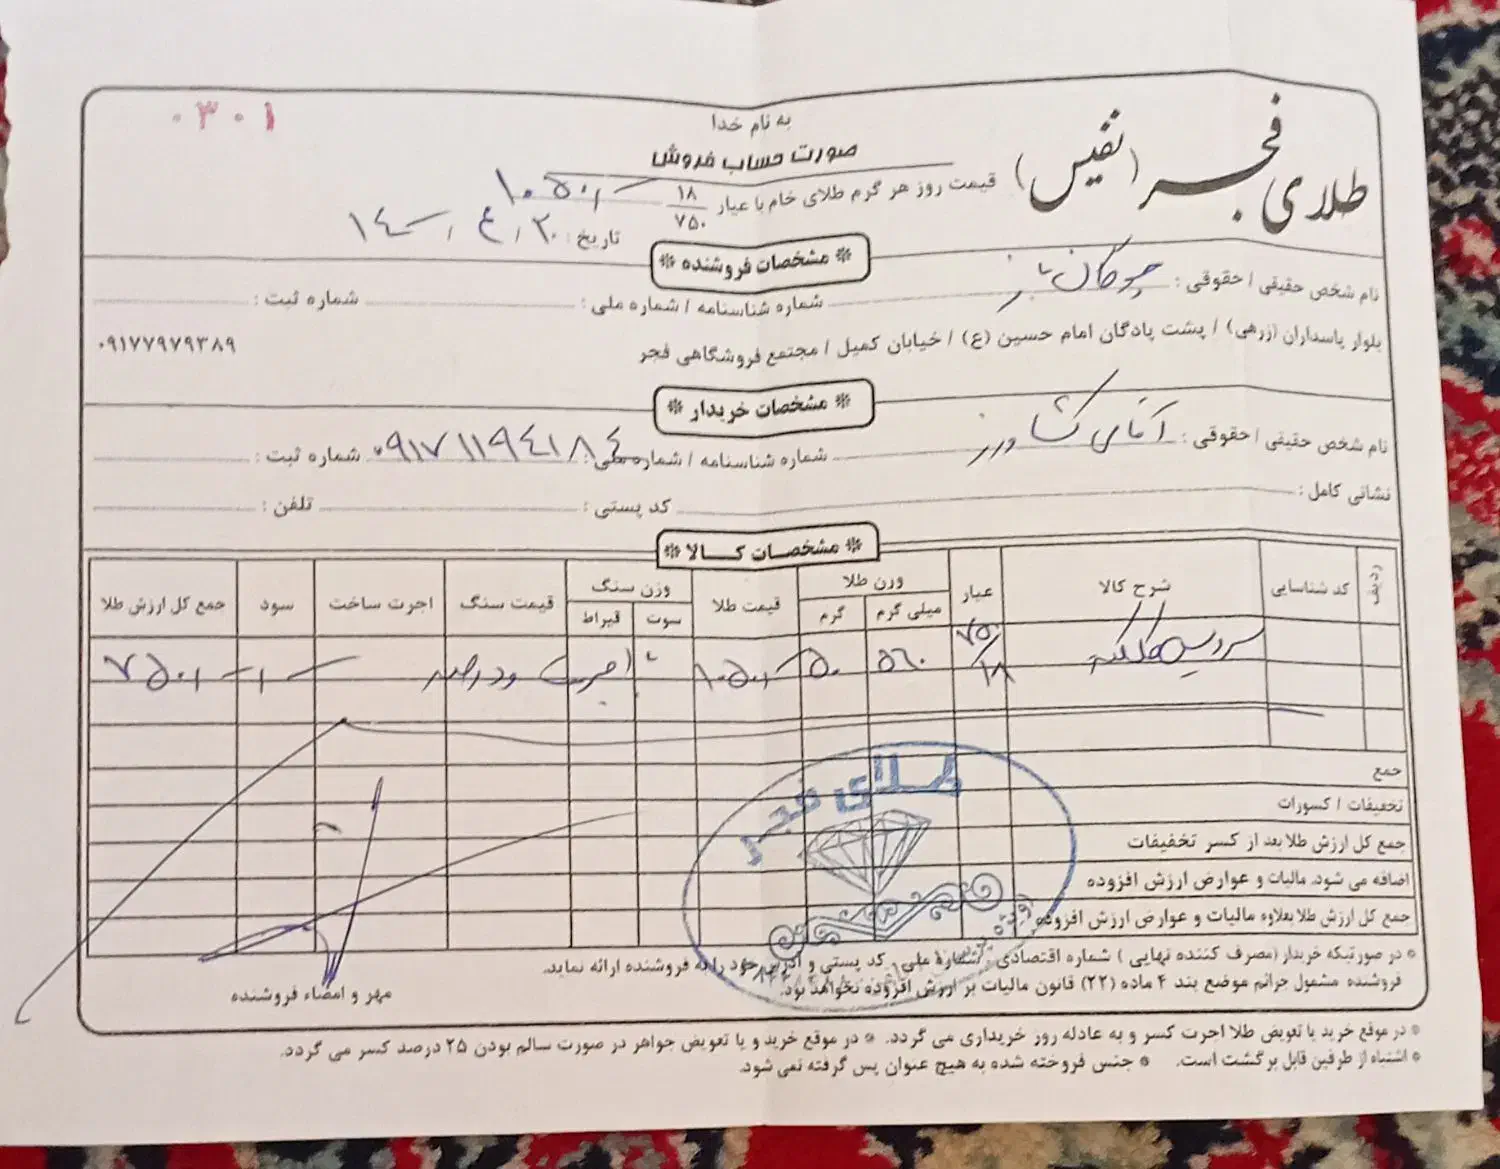 ۰۳۰۱
به نام خدا
صورت حساب فروش
طلای فجر (نفیس)
قیمت روز هر گرم طلای خام با عیار ۱۸/۷۵۰
تاریخ: ۲۰ / ۴ / ۱۴۰۰
* مشخصات فروشنده *
نام شخص حقیقی / حقوقی : شماره شناسنامه / شماره ملی : شماره ثبت :
بلوار پاسداران (زرهی) / پشت پادگان امام حسین (ع) / خیابان کمیل / مجتمع فروشگاهی فجر ۰۹۱۷۷۹۷۹۳۸۹
* مشخصات خریدار *
نام شخص حقیقی / حقوقی : آقای کشاورز شماره شناسنامه / شماره ملی : ۰۹۱۷۱۱۹۴۱۸۴ شماره ثبت :
نشانی کامل : کد پستی : تلفن :
* مشخصات کالا *
ردیف کد شناسایی شرح کالا عیار وزن طلا قیمت طلا وزن سنگ قیمت سنگ اجرت ساخت سود جمع کل ارزش طلا
میلی گرم گرم سوت قیراط
سرویس ۷۵۰/۱۸ ۵۶۰ ۵۰ اجرت
جمع
تخفیفات / کسورات
جمع کل ارزش طلا بعد از کسر تخفیفات
اضافه می شود. مالیات و عوارض ارزش افزوده
جمع کل ارزش طلا بعلاوه مالیات و عوارض ارزش افزوده
طلای فجر
* در صورتیکه خریدار (مصرف کننده نهایی ) شماره اقتصادی / شماره ملی کد پستی و آدرس خود را به فروشنده ارائه نماید.
فروشنده مشمول جرائم موضع بند ۴ ماده (۲۲) قانون مالیات بر ارزش افزوده نخواهد بود.
مهر و امضاء فروشنده
* در موقع خرید یا تعویض طلا اجرت کسر و به عادله روز خریداری می گردد. * در موقع خرید و یا تعویض جواهر در صورت سالم بودن ۲۵ درصد کسر می گردد.
* اشتباه از طرفین قابل برگشت است. * جنس فروخته شده به هیچ عنوان پس گرفته نمی شود.